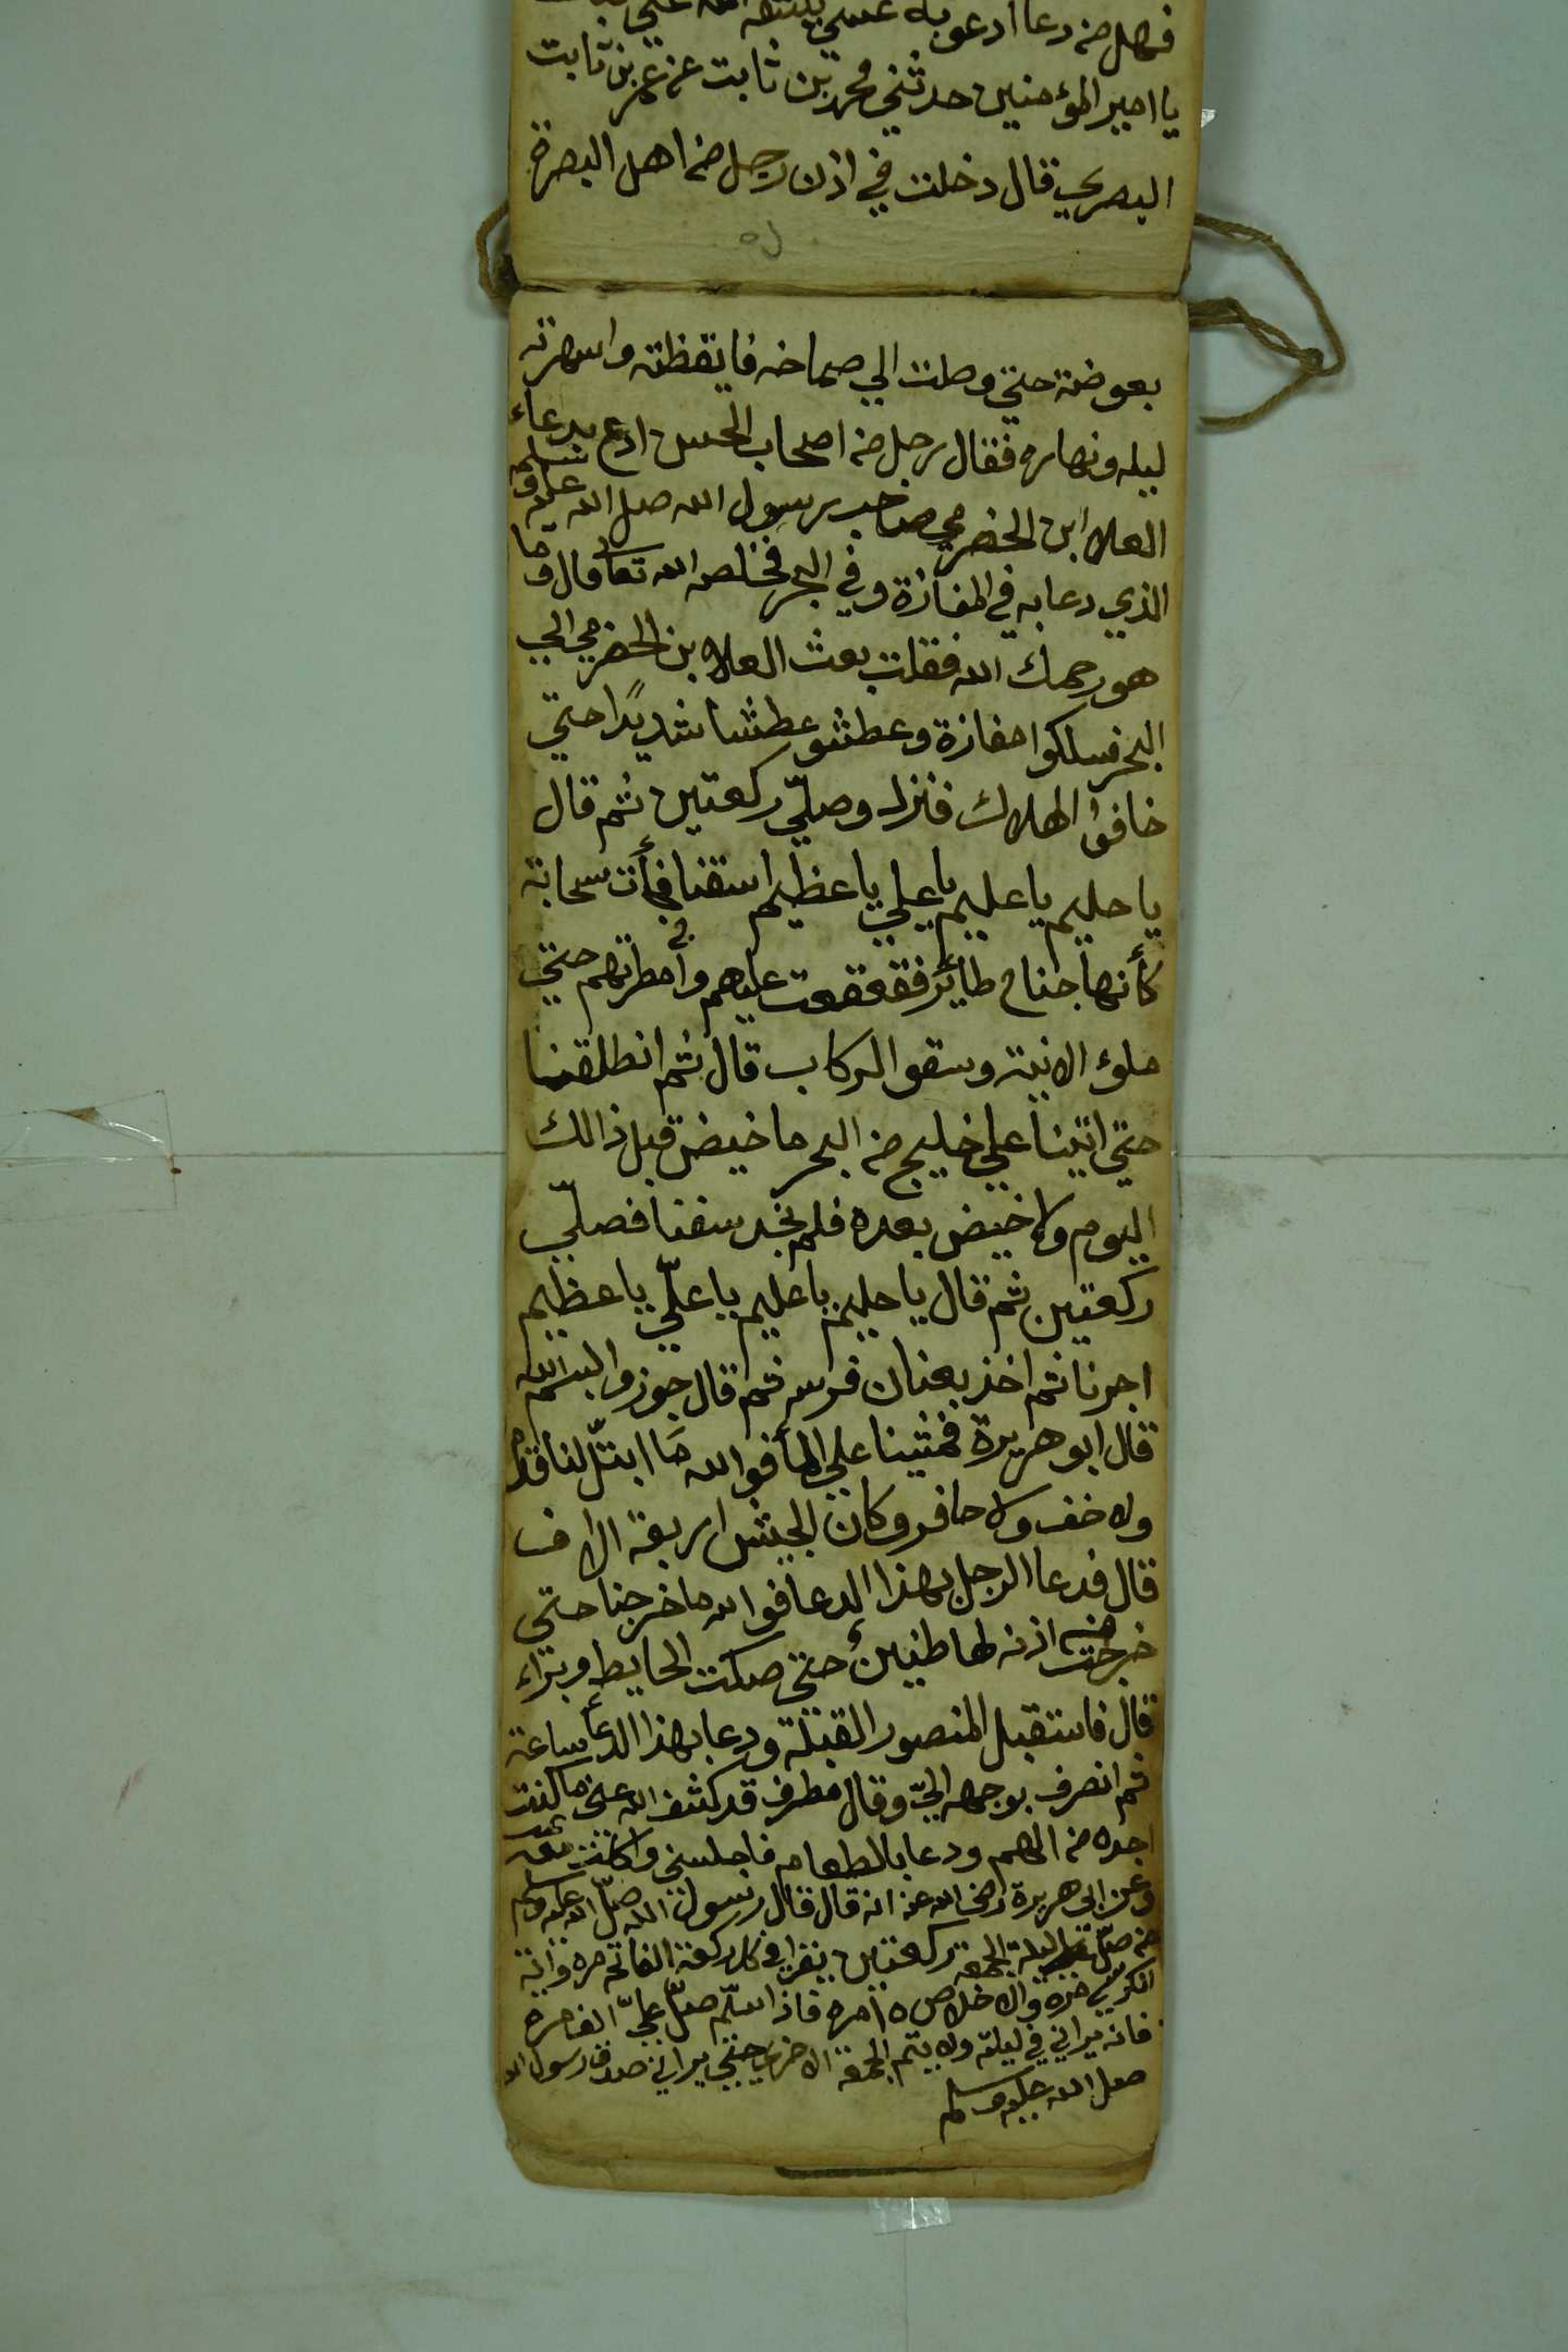 فهل من دعا ادعو به عسي
يا امير المؤمنين حدثني محمد بن ثابت عن عمر بن ثابت
البصري قال دخلت في اذن رجل من اهل البصرة
بعوضة حتي وصلت الي صماخه فايقظته واسهرته
ليله ونهاره فقال رجل من اصحاب الحسن ادع بدعاء
العلا ابن الحضرمي صاحب رسول الله صل الله عليه وسلم
الذي دعا به في المفازة وفي البحر فخلصه الله تعا قال وما
هو رحمك الله فقلت بعث العلا بن الحضرمي الي
البحر فسلكوا مفازة وعطشو عطشا شديدًا حتي
خافوا الهلاك فنزل وصلّي ركعتين ثم قال
يا حليم يا عليم يا علي يا عظيم اسقنا فجأت سحابة
كأنها جناح طائر فقعقعت عليهم وأمطرتهم حتي
ملؤ الانية وسقو الركاب قال ثم انطلقنا
حتي اتينا علي خليج من البحر ما خيض قبل ذالك
اليوم ولا خيض بعده فلم نجد سفنا فصلّي
ركعتين ثم قال يا حليم يا عليم يا علّي يا عظيم
اجرنا ثم اخذ بعنان فرسه ثم قال جوزوا بسم الله
قال ابو هريرة فمشينا علي المأ فوالله مَا ابتلّ لنا قدم
ولا خف ولا حافر وكان الجيش اربعة الاف
قال فدعا الرجل بهذا الدعا فوالله ما خرجنا حتى
خرجت من اذنه لها طنين حتي صكت الحايط وبراء
قال فاستقبل المنصور القبلة ودعا بهذا الدعأ ساعة
ثم انصرف بوجهه اليّ وقال مطرف قد كشف الله عني ما كنت
اجده من الهم ودعا بالطعام فاجلسني واكلت معه
وعن ابى هريرة رضي الله عنه انه قال قال رسول الله صلّ الله عليه وسلم
من صلّ ليلة الجمعة ركعتين يقرا في كل ركعة الفاتحه مره واية
الكرسي مره والاخلاص ١٥ مره فاذا سلّم صلّ عليّ الف مره
فانه يراني في ليلته ولا يتم الجمعة الاخرى حتي يراني صدق رسول الله
صل الله عليه وسلم